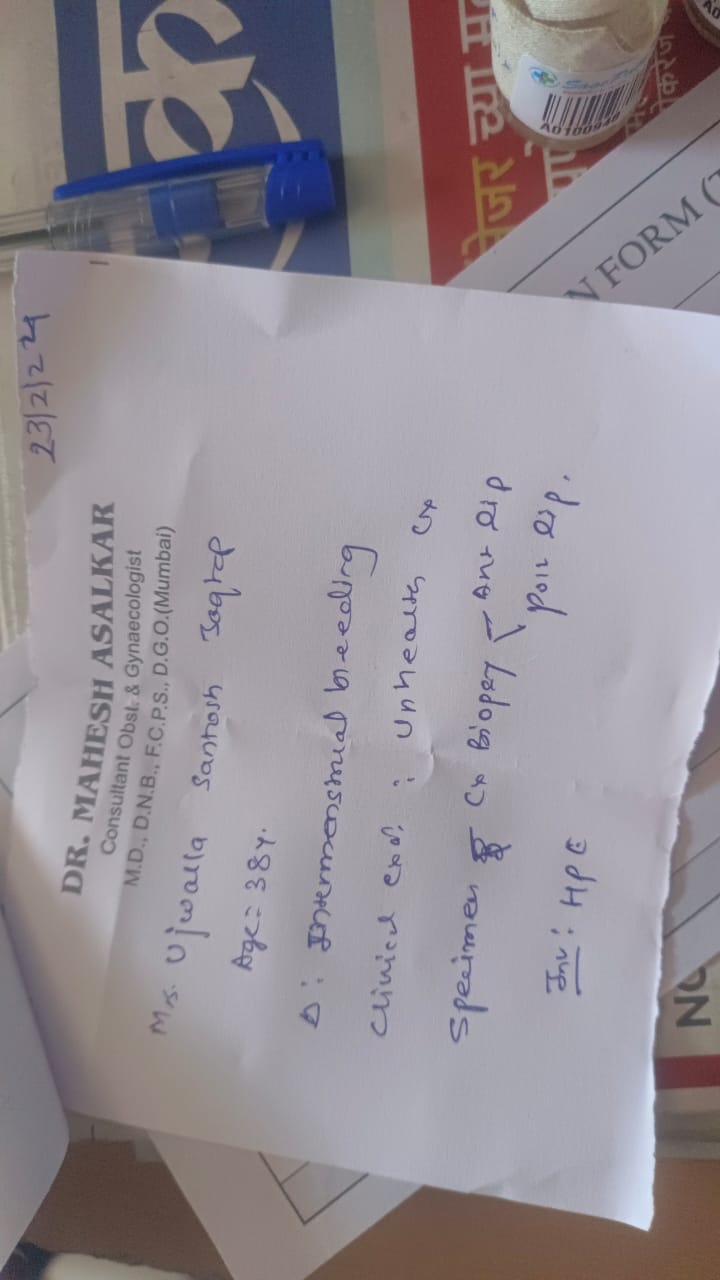 23/2/24
DR. MAHESH ASALKAR
Consultant Obst. & Gynaecologist
M.D., D.N.B., F.C.P.S., D.G.O.(Mumbai)
Mrs. Ujwalla Santosh
Age = 38y.
Δ : Intermenstrual bleeding
Clinical exn. : Unhealthy Cx
Specimen Cx Biopsy Ant lip
Post lip.
Inv : HPE
N FORM (
A0100949
क